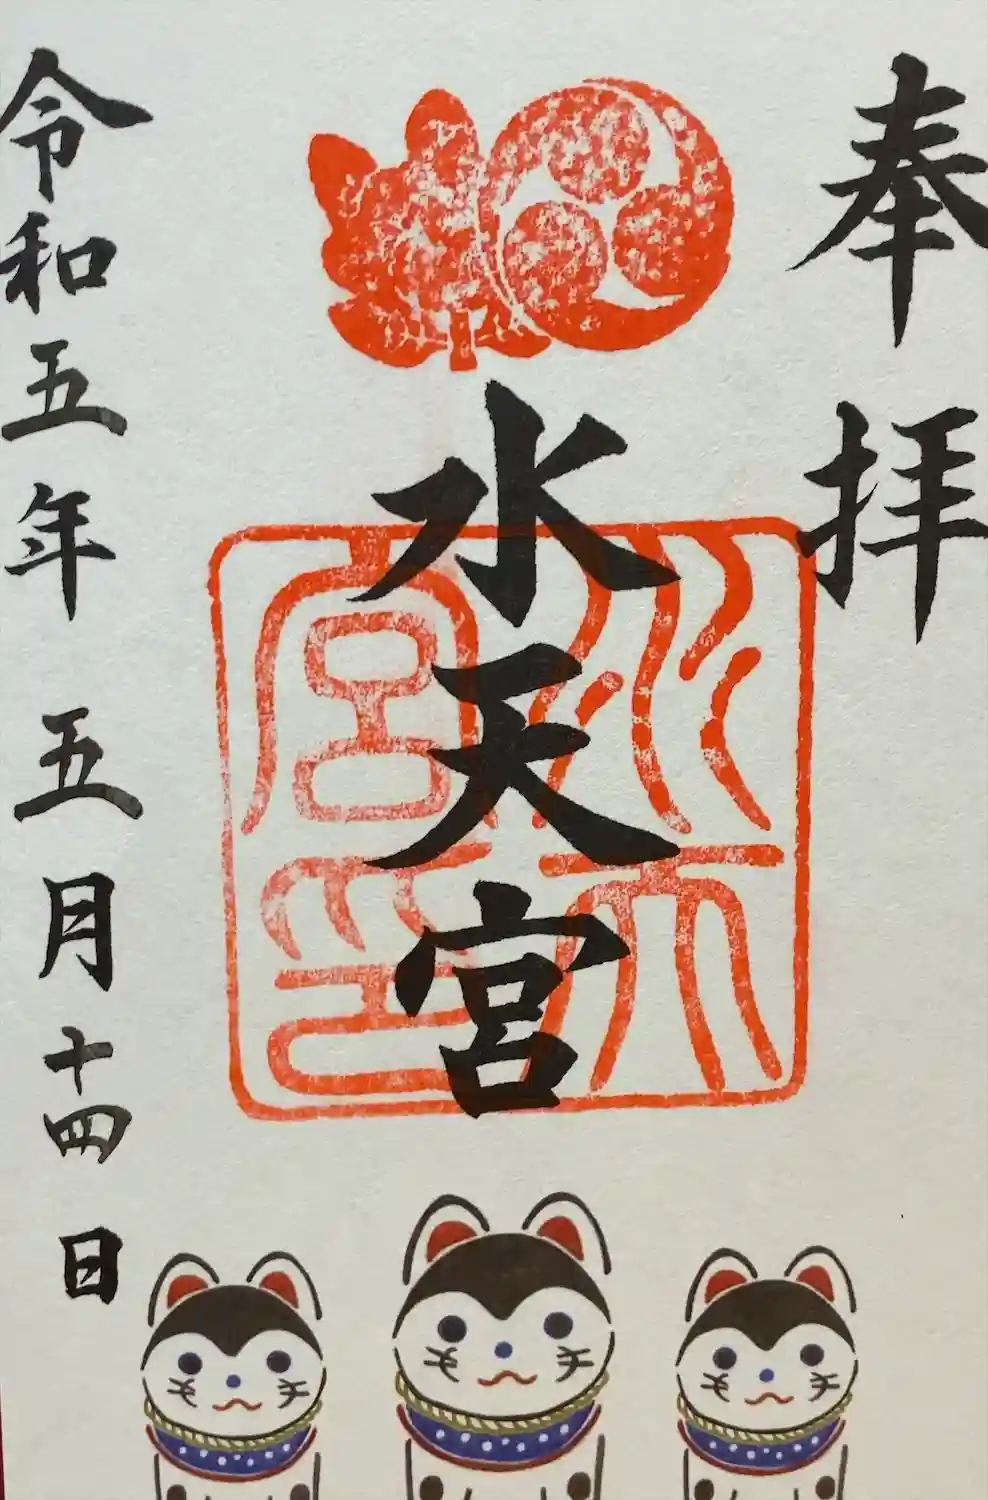 奉拝
水天宮
水天宮印
令和五年五月十四日